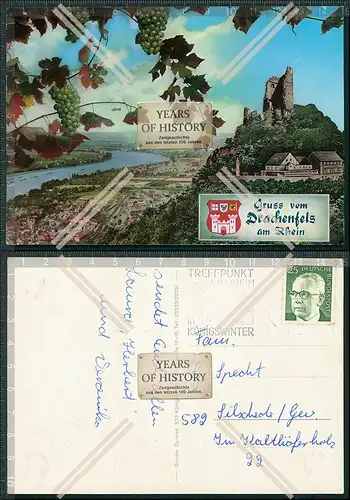 YEARS
OF HISTORY
Zeitgeschichte
aus den letzten 100 Jahren.
Gruss vom
Drachenfels
am Rhein
TREFFPUNKT
AM RHEIN
KÖNIGSWINTER
25 DEUTSCHE
BUNDESPOST
sendet allen
Hanna, Herbert
und Veronika
YEARS
OF HISTORY
Zeitgeschichte
aus den letzten 100 Jahren.
Fam.
Specht
582 Silschede/Gev
Im Kalthöferholz
22